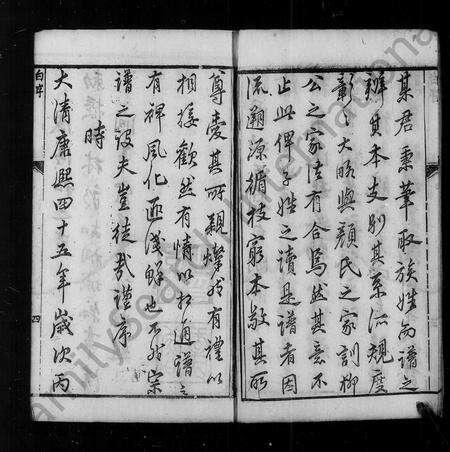 某君秉筆取族姓而譜之
辨其本支別其系派規度
彰之大略與顏氏之家訓柳
公之家法有合焉然其意不
止此俾子姓之讀是譜者因
流溯源循枝窮本敬其所
尊愛其所親燦然有禮以
相接歡然有情以相通譜之
有裨風化匪淺鮮也不然宗
譜之設夫豈徒哉謹序
時
大清康熙四十五年歲次丙
四
FamilySearch International